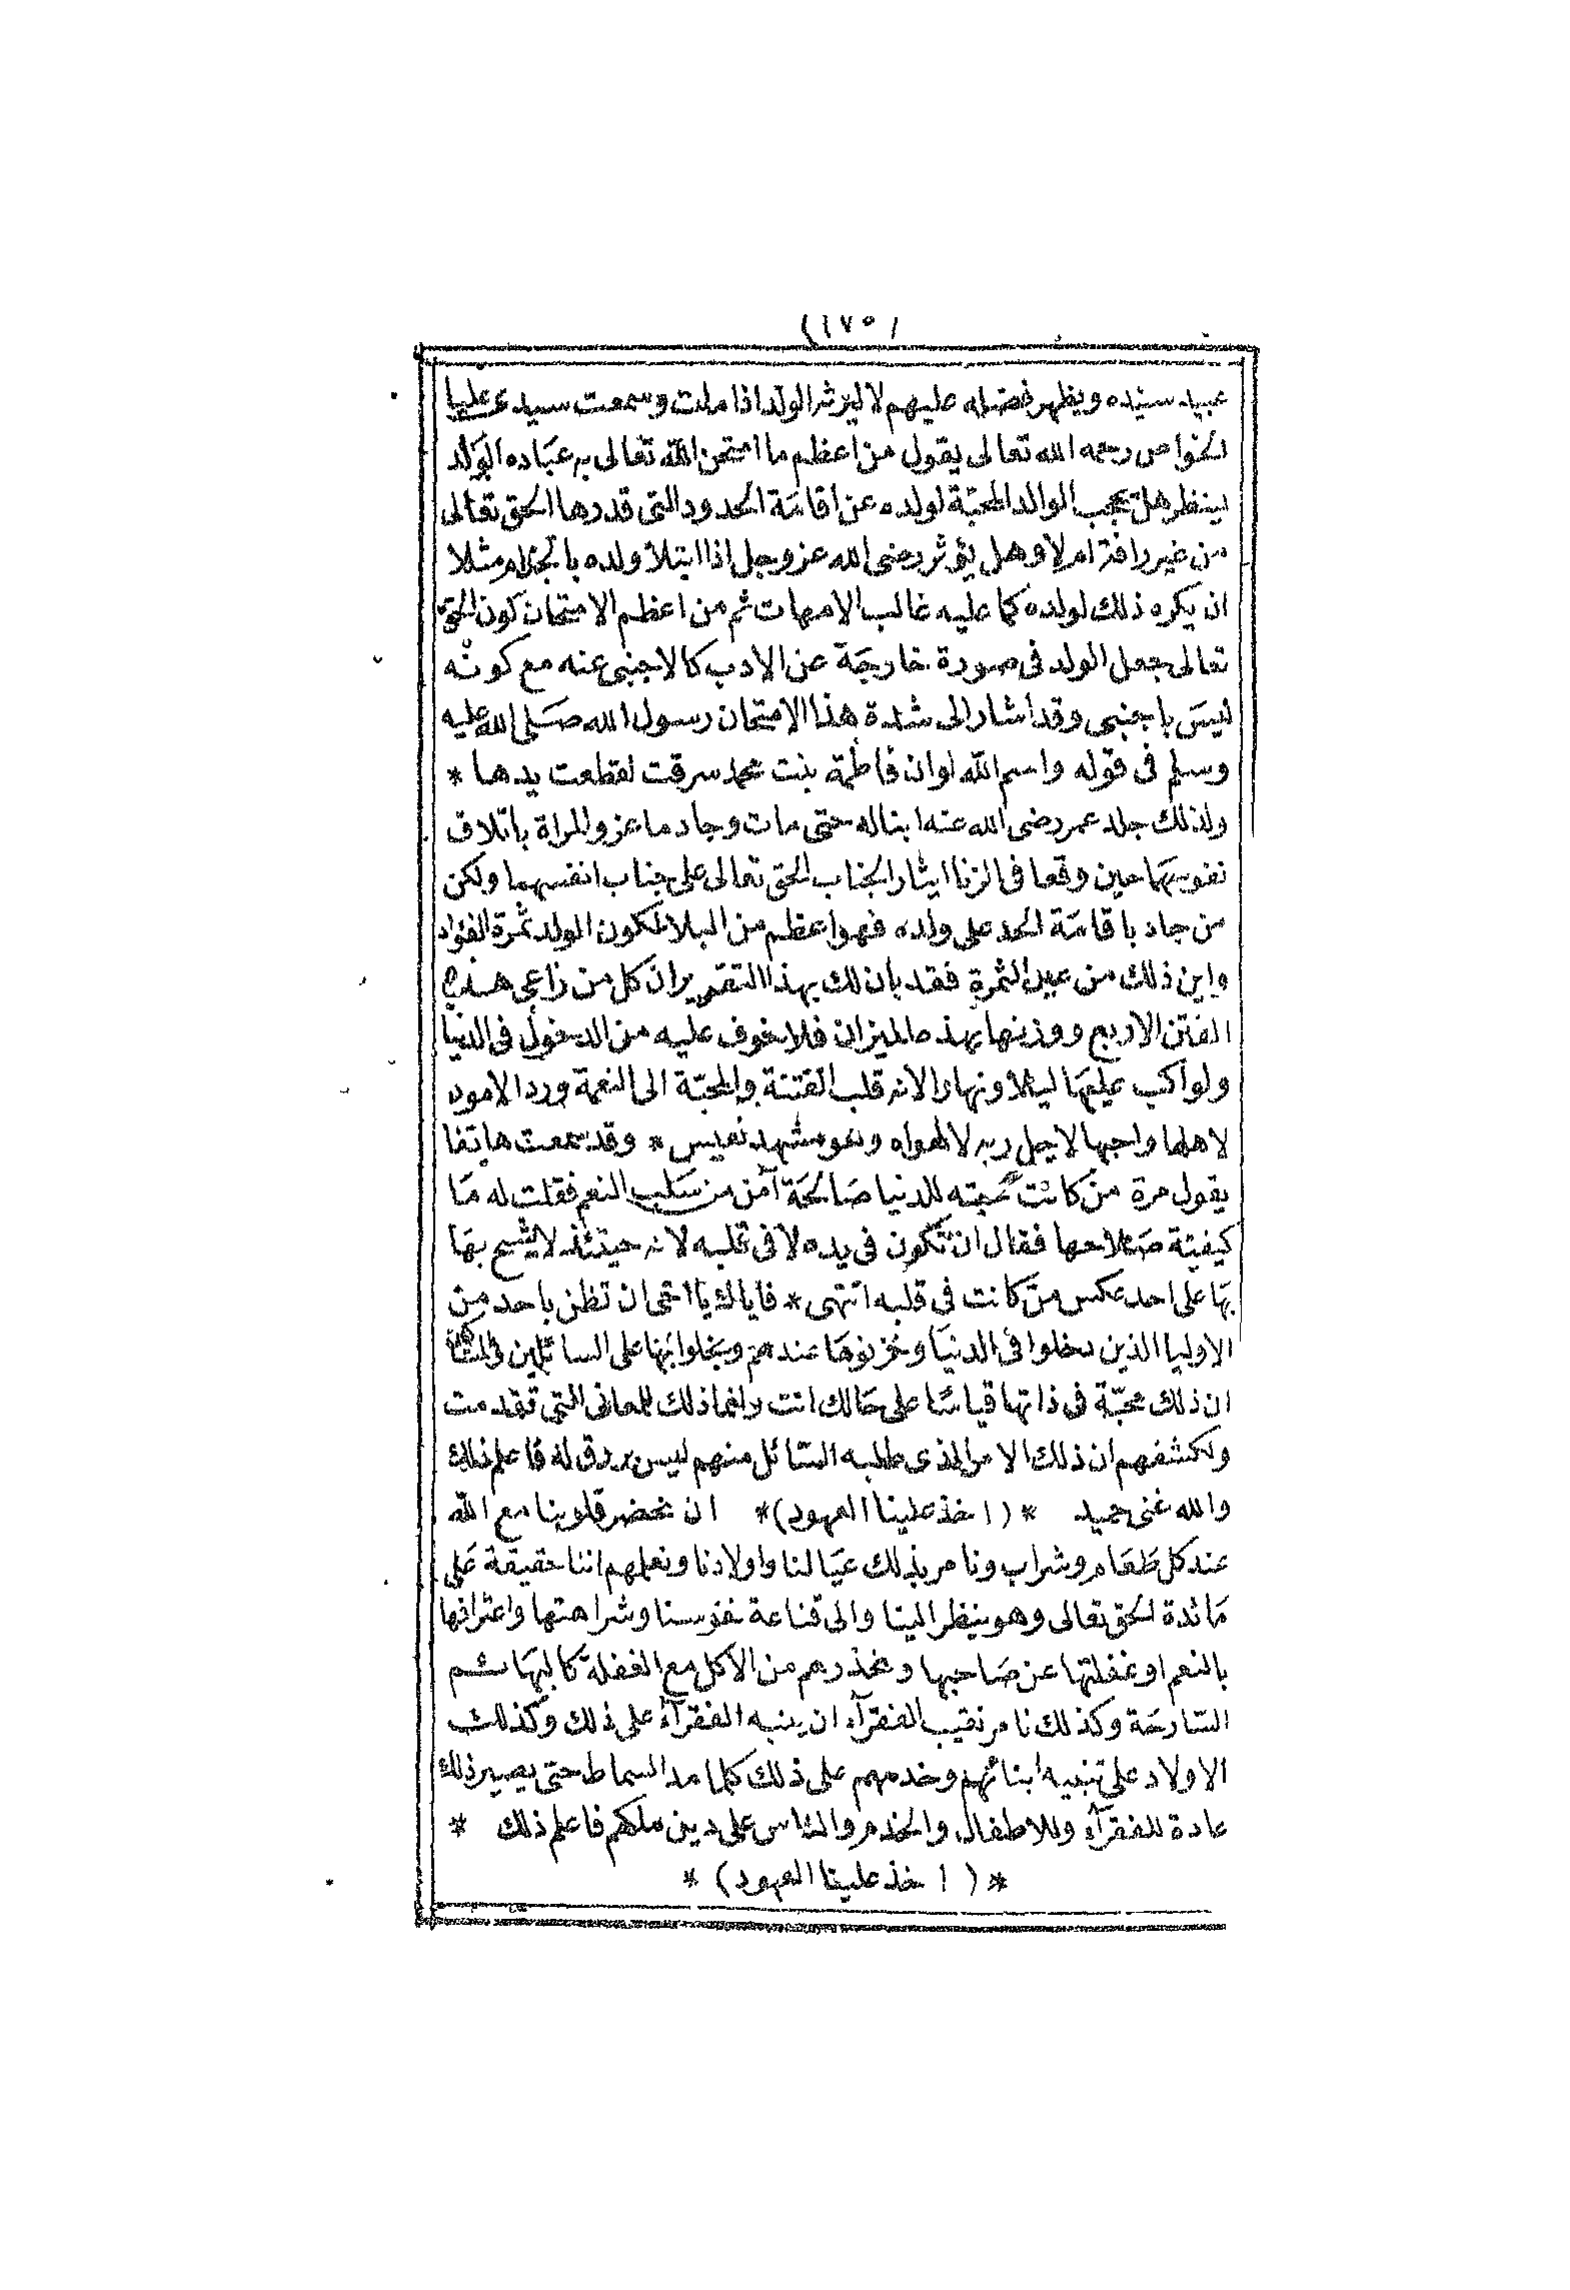 (١٧٥)
عبيد سيده ويظهر فضله عليهم لا ليرثه الولد اذا مات وسمعت سيدى عليا
الخواص رحمه الله تعالى يقول من اعظم ما امتحن الله تعالى به عباده الولد
لينظر هل تحجب الوالد المحبة لولده عن اقامة الحدود التى قدرها الحق تعالى
من غير رافة ام لا وهل يؤثر رضى الله عز وجل اذا ابتلا ولده بالجذام مثلا
ان يكره ذلك لولده كما عليه غالب الامهات ثم من اعظم الامتحان كون الحق
تعالى جعل الولد فى صورة خارجة عن الادب كالاجنبى عنه مع كونه
ليس باجنبى وقد اشار الى شدة هذا الامتحان رسول الله صلى الله عليه
وسلم فى قوله واسم الله لوان فاطمة بنت محمد سرقت لقطعت يدها *
ولذلك جلد عمر رضى الله عنه ابنا له حتى مات وجاد ماعز والمراة باتلاف
نفوسهما حين وقعا فى الزنا ايثارا لجناب الحق تعالى على جناب انفسهما ولكن
من جاد باقامة الحد على ولده فهو اعظم من البلا لكون الولد ثمرة الفؤاد
واين ذلك من عين الثمرة فقد بان لك بهذا التقرير ان كل من راعى هذه
الفتن الاربع ووزنها بهذه الميزان فلا خوف عليه من الدخول فى الدنيا
ولو اكب عليها ليلا ونهارا لانه قلب الفتنة والمحبة الى النعمة ورد الامور
لاهلها واحبها لاجل ربه لا لهواه وهو مشهد نفيس * وقد سمعت هاتفا
يقول مرة من كانت محبته للدنيا صالحة آمن من سلب النعم فقلت له ما
كيفية صلاحها فقال ان تكون فى يده لا فى قلبه لانه حينئذ لا يشح بها
بها على احد عكس من كانت فى قلبه انتهى * فاياك يا اخى ان تظن باحد من
الاوليا الذين دخلوا فى الدنيا وخزنوها عندهم وبخلوا بها على السائلين
ان ذلك محبة فى ذاتها قياسا على حالك انت وانما ذلك للمعانى التى تقدمت
ولكشفهم ان ذلك الامر الذى طلبه السائل منهم ليس برزق له فاعلم ذلك
والله غنى حميد * (اخذ علينا العهود) * ان نحضر قلوبنا مع الله
عند كل طعام وشراب ونامر بذلك عيالنا واولادنا ونعلمهم اننا حقيقة على
مائدة الحق تعالى وهو ينظر الينا والى قناعة نفوسنا وشراهتها واعترافها
بالنعم او غفلتها عن صاحبها ونحذرهم من الاكل مع الغفلة كالبهائم
السارحة وكذلك نامر نقيب الفقرآء ان ينبه الفقرآء على ذلك وكذلك
الاولاد على تنبيه ابنائهم وخدمهم على ذلك كلما مد السماط حتى يصير ذلك
عادة للفقرآء وللاطفال والخدم والناس على دين ملكهم فاعلم ذلك *
* (اخذ علينا العهود) *